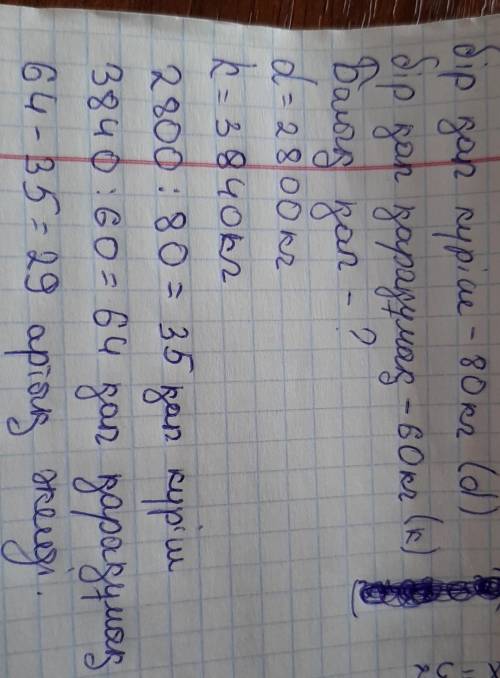 бір қап күріш - 80 кг (d)
бір қап қарақұмық - 60 кг (к)
қап - ?
d = 2800 кг
k = 3840 кг
2800 : 80 = 35 қап күріш
3840 : 60 = 64 қап қарақұмық
64 - 35 = 29 артық